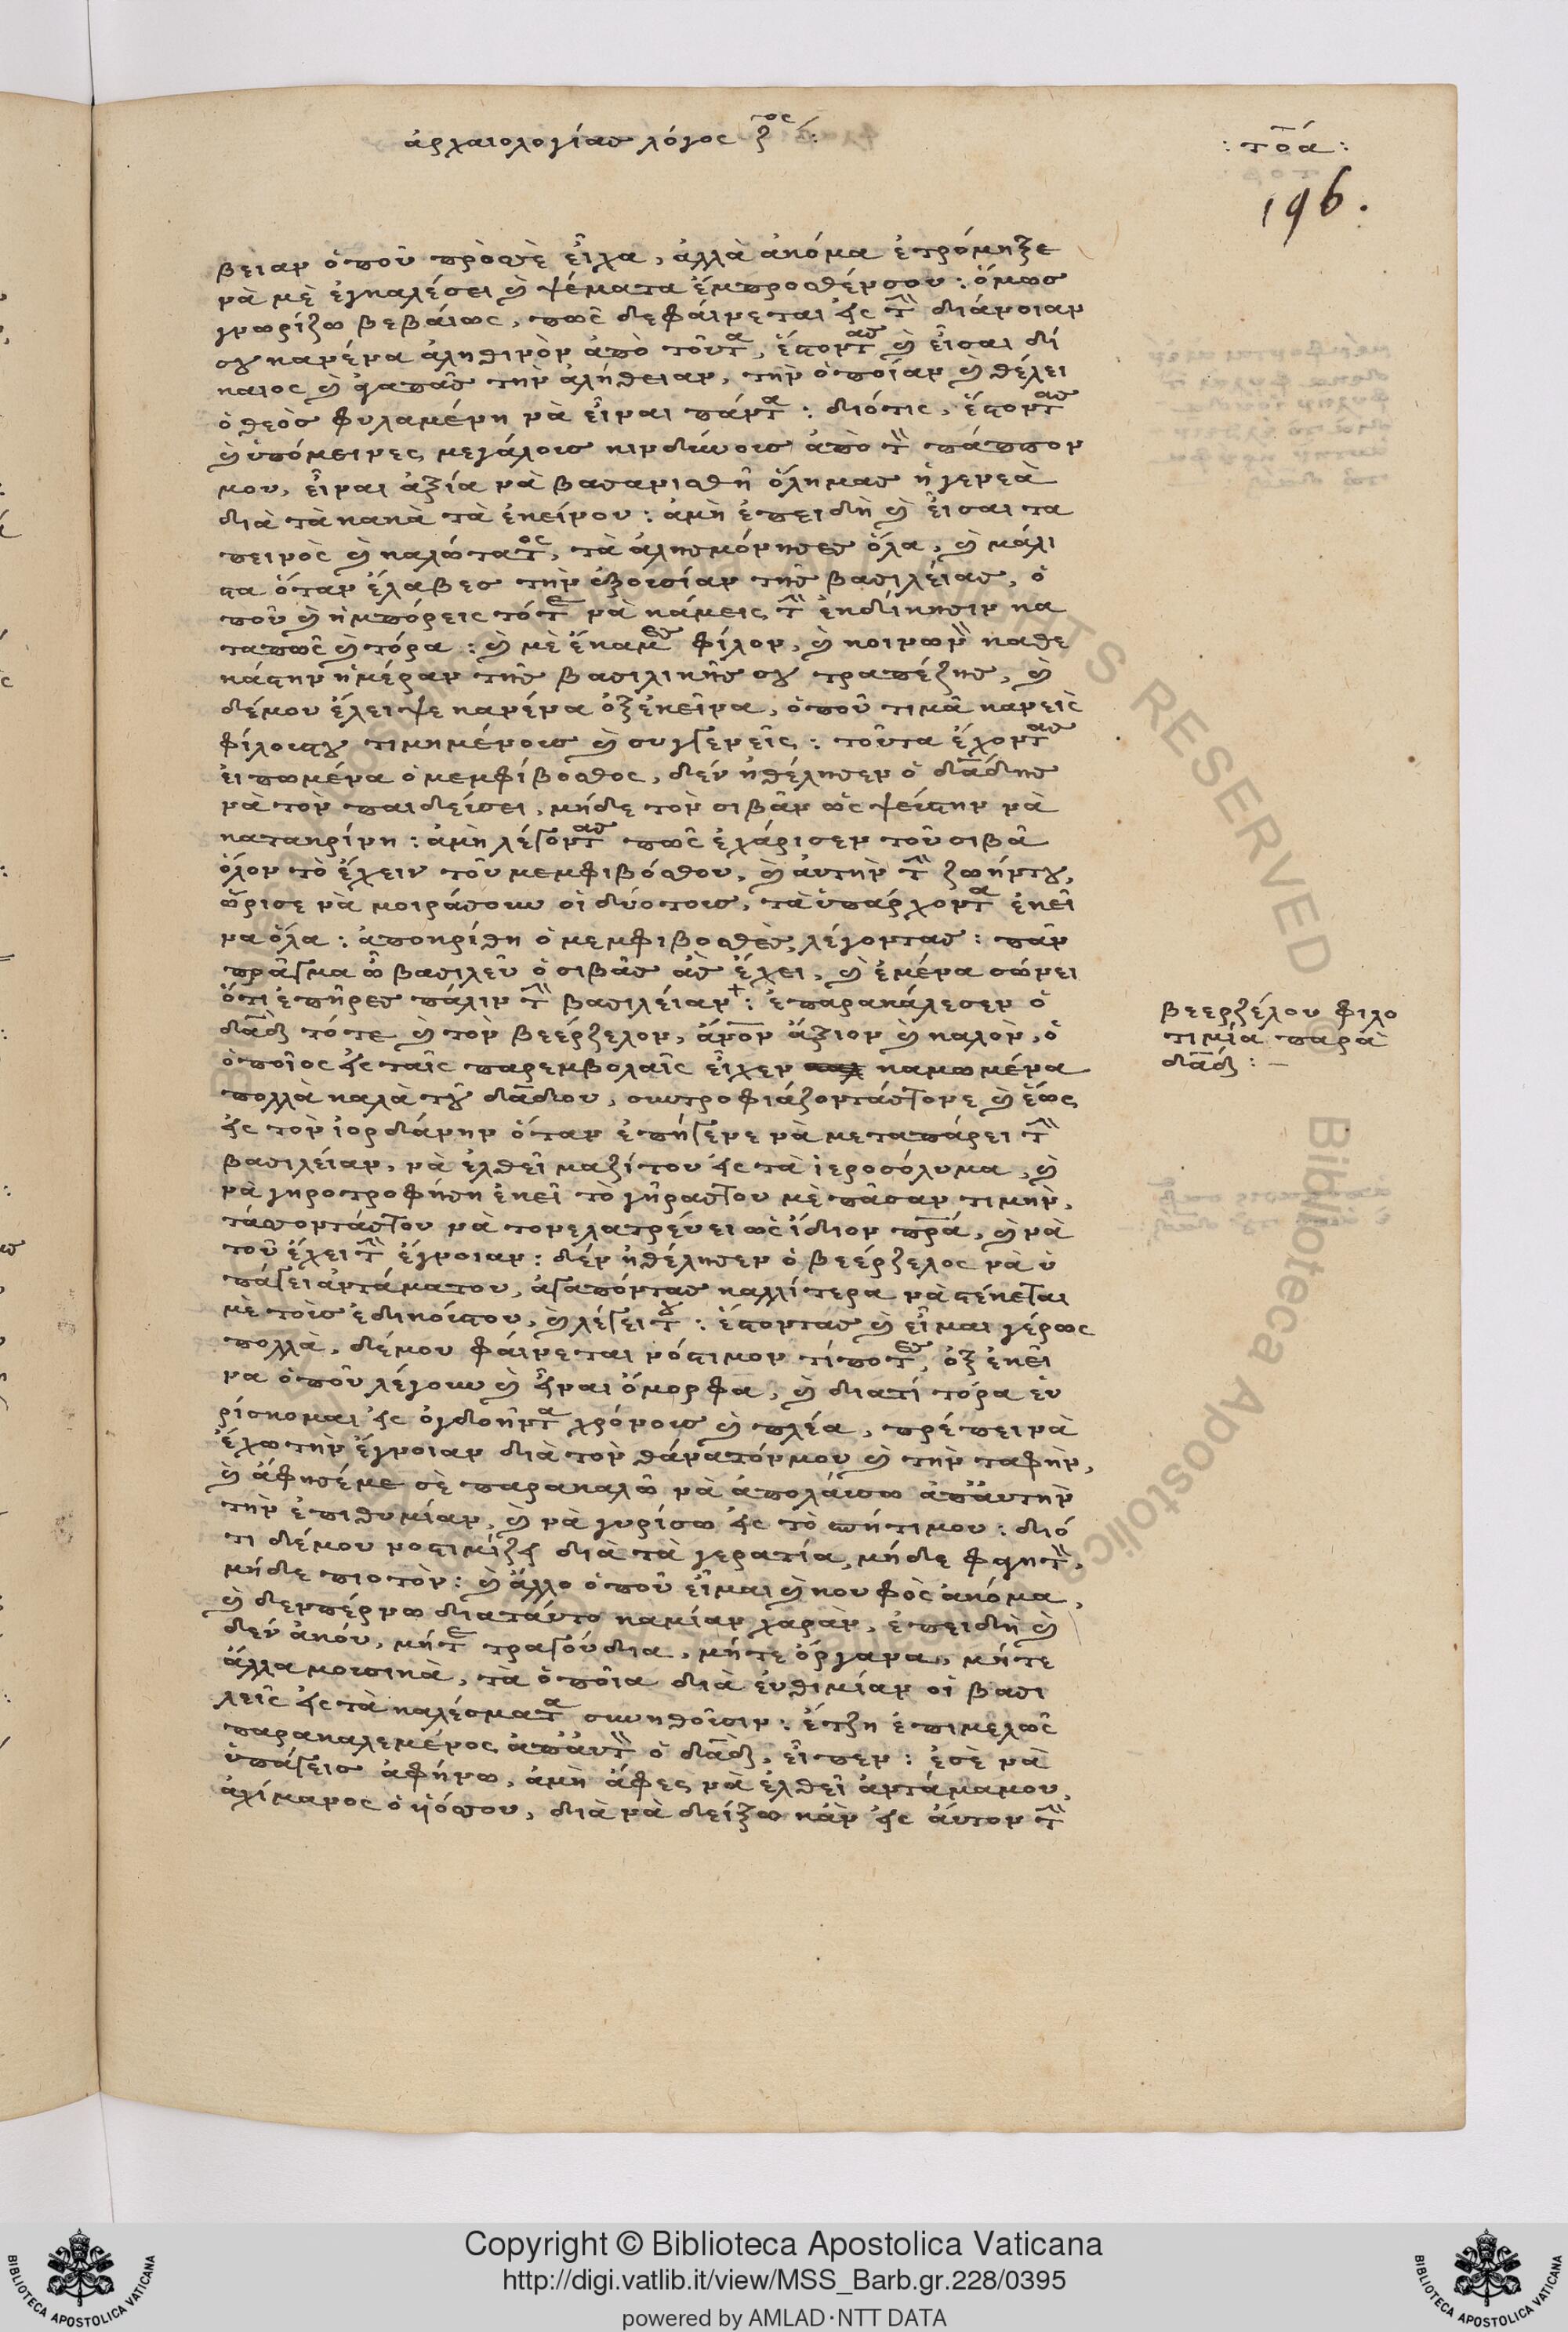 ἀρχαιολογίας λόγος ζος:
:τοά:
196.
βειαν ὁποῦ πρὸςὲ εἶχα, ἀλλὰ ἀκόμα ἐτρόμηξε
νὰ μὲ ἐγκαλέσει ϗ ψέματα ἔμπροσθένσου: ὅμως
γνωρίζω βεβάιως, πῶς δεφάινεται εἰς τὴν διάνοιαν
σου κανένα ἀληθινὸν ἀπὸ τοῦτα, ἔςοντας ϗ εἶσαι δί
καιος ϗ ἀγαπᾶς τὴν ἀλήθειαν, τὴν ὁποίαν ϗ θέλει
ὁ θεὸς φυλαμένη νὰ εἶναι πάντα: διότις, ἔςοντας
ϗ ὑπόμεινες μεγάλους κινδύνους ἀπὸ τὸν πάππον
μου, εἶναι ἀξία νὰ βασανισθῆ ὅλημας ἡ γενεὰ
διὰ τὰ κακὰ τὰ ἐκείνου: ἀμὴ ἐπειδὴ ϗ εἶσαι τα
πεινὸς ϗ καλώτατος, τὰ ἀλησμόνησες ὅλα, ϗ μάλι
ςα ὅταν ἔλαβες τὴν ἐξουσίαν τῆς βασιλείας, ὁ
ποῦ ϗ ἠμπόρεις τότε νὰ κάμεις τὴν ἐκδίκησιν κα
ταπῶς ϗ τόρα: ϗ μὲ ἔκαμες φίλον, ϗ κοινωνὸν καθε
κάςην ἡμέραν τῆς βασιλικῆς σου τραπέζης, ϗ
δέμου ἔλειψε κανένα ὀξἐκεῖνα, ὁποῦ τιμᾶ κανεὶς
φίλουςου τιμημένους ϗ συγγενεῖς: τοῦτα ἔχοντας
εἰπωμένα ὁ μεμφίβοσθος, δέν ἠθέλησεν ὁ δαδης
νὰ τὸν παιδεύσει, μήδε τὸν σιβᾶν ὡς ψεύςην νὰ
κατακρίνη: ἀμὴ λέγοντας πῶς ἐχάρισεν τοῦ σιβᾶ
ὅλον τὸ ἔχειν τοῦ μεμφιβόσθου, ϗ ἀυτὴν τὴν ζωήντου,
ὥρισε νὰ μοιράσουν οἱ δύοτους, τὰ ὑπάρχοντα ἐκεῖ
να ὅλα: ἀποκρίθη ὁ μεμφιβοσθὲς λέγοντας: πᾶν
πρᾶγμα ὦ βασιλεῦ ὁ σιβᾶς ἀς ἔχει, ϗ ἐμένα σώνει
ὅτι ἐπῆρες πάλιν τὴν βασιλείαν+: ἐπαρακάλεσεν ὁ
δαδ τότε ϗ τὸν βεέρζελον, ἄνον ἄξιον ϗ καλὸν, ὁ
ὁποῖος εἰς ταῖς παρεμβολαῖς εἶχεν καμωμένα
πολλὰ καλὰ τοῦ δαδου, συντροφιάζοντάςτονε ϗ ἕως
εἰς τὸν ἰορδάνην ὅταν ἐπήγενε νὰ μεταπάρει τὴν
βασιλείαν, νὰ ἐλθεῖ μαζίτου εἰς τὰ ἱεροσόλυμα, ϗ
νὰ γηροτροφήθη ἐκεῖ τὸ γῆραςτου μὲ πᾶσαν τιμὴν,
τάσοντάςτου νὰ τονελατρέυει ὡς ἴδιον πρα, ϗ νὰ
τοῦ ἔχει τὴν ἔγνοιαν: δέν ἠθέλησεν ὁ βεέρζελος νὰ ὑ
πάγει ἀντάματου, ἀγαπόντας καλλίτερα νὰ ςέκεται
μὲ τοὺς ἐδικούςτου, ϗ λέγει του: ἔςοντας ϗ εἶμαι γέρως
πολλὰ, δέμου φάινεται νόςιμον τίποτες, ὀξἐκεῖ
να ὁποῦ λέγουν ϗ εἶναι ὄμορφα, ϗ διατί τόρα εὑ
ρίσκομαι εἰς ὀγδοῆντα χρόνους ϗ πλέα, πρέπει νὰ
ἔχω τὴν ἔγνοιαν διὰ τὸν θάνατόνμου ϗ τὴν ταφὴν,
ϗ ἄφησέμε σὲ παρακαλῶ νὰ ἀπολάυσω ἀπἄυτην
τὴν ἐπιθυμίαν, ϗ νὰ γυρίσω εἰς τὸ σπήτιμου: διό
τι δέμου νοςιμίζει διὰ τὰ γερατία, μήδε φαγητὸν,
μήδε πιοτὸν: ϗ ἄλλο ὁποῦ εἶμαι ϗ κουφὸς ἀκόμα,
ϗ δενπέρνω διατάυτο καμίαν χαρὰν, ἐπειδὴ ϗ
δέν ἀκόυ, μήτε τραγούδια, μήτε ὄργανα, μήτε
ἄλλα μουσικὰ, τὰ ὁποῖα διὰ ἐυθιμίαν οἱ βασι
λεῖς εἰς τὰ καλέσματα συνηθοῦσιν: ἔτζη ἐπιμελῶς
παρακαλεμένος ἀπἀυτὸν ὁ δαδ, εἶπεν: ἐσὲ νὰ
ὑπάγεις ἀφήνω, ἀμὴ ἄφες νὰ ἐλθεῖ ἀντάμαμου,
ἀχίμανος ὁ ὑόςσου, διὰ νὰ δείξω κἀν εἰς ἀυτον τὴν
βεερζέλου φιλο
τιμία παρὰ
δαδ:—
Copyright © Biblioteca Apostolica Vaticana
http://digi.vatlib.it/view/MSS_Barb.gr.228/0395
powered by AMLAD·NTT DATA
BIBLIOTECA APOSTOLICA VATICANA
BIBLIOTECA APOSTOLICA VATICANA